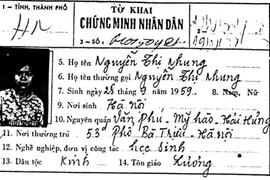 1 - TỈNH, THÀNH PHỐ
HN
TỜ KHAI
CHỨNG MINH NHÂN DÂN
3 - SỐ:
5. Họ tên Nguyễn Thị Nhung
6. Họ tên thường gọi Nguyễn Thị Nhung
7. Sinh ngày 28 tháng 9 năm 1959. 8. Nam, Nữ
9. Nơi sinh Hà nội
10. Nguyên quán Văn Phú - Mỹ hào - Hải Hưng
11. Nơi thường trú 53 Phố Bà Triệu - Hà nội
12. Nghề nghiệp, đơn vị công tác học sinh
13. Dân tộc Kinh 14. Tôn giáo